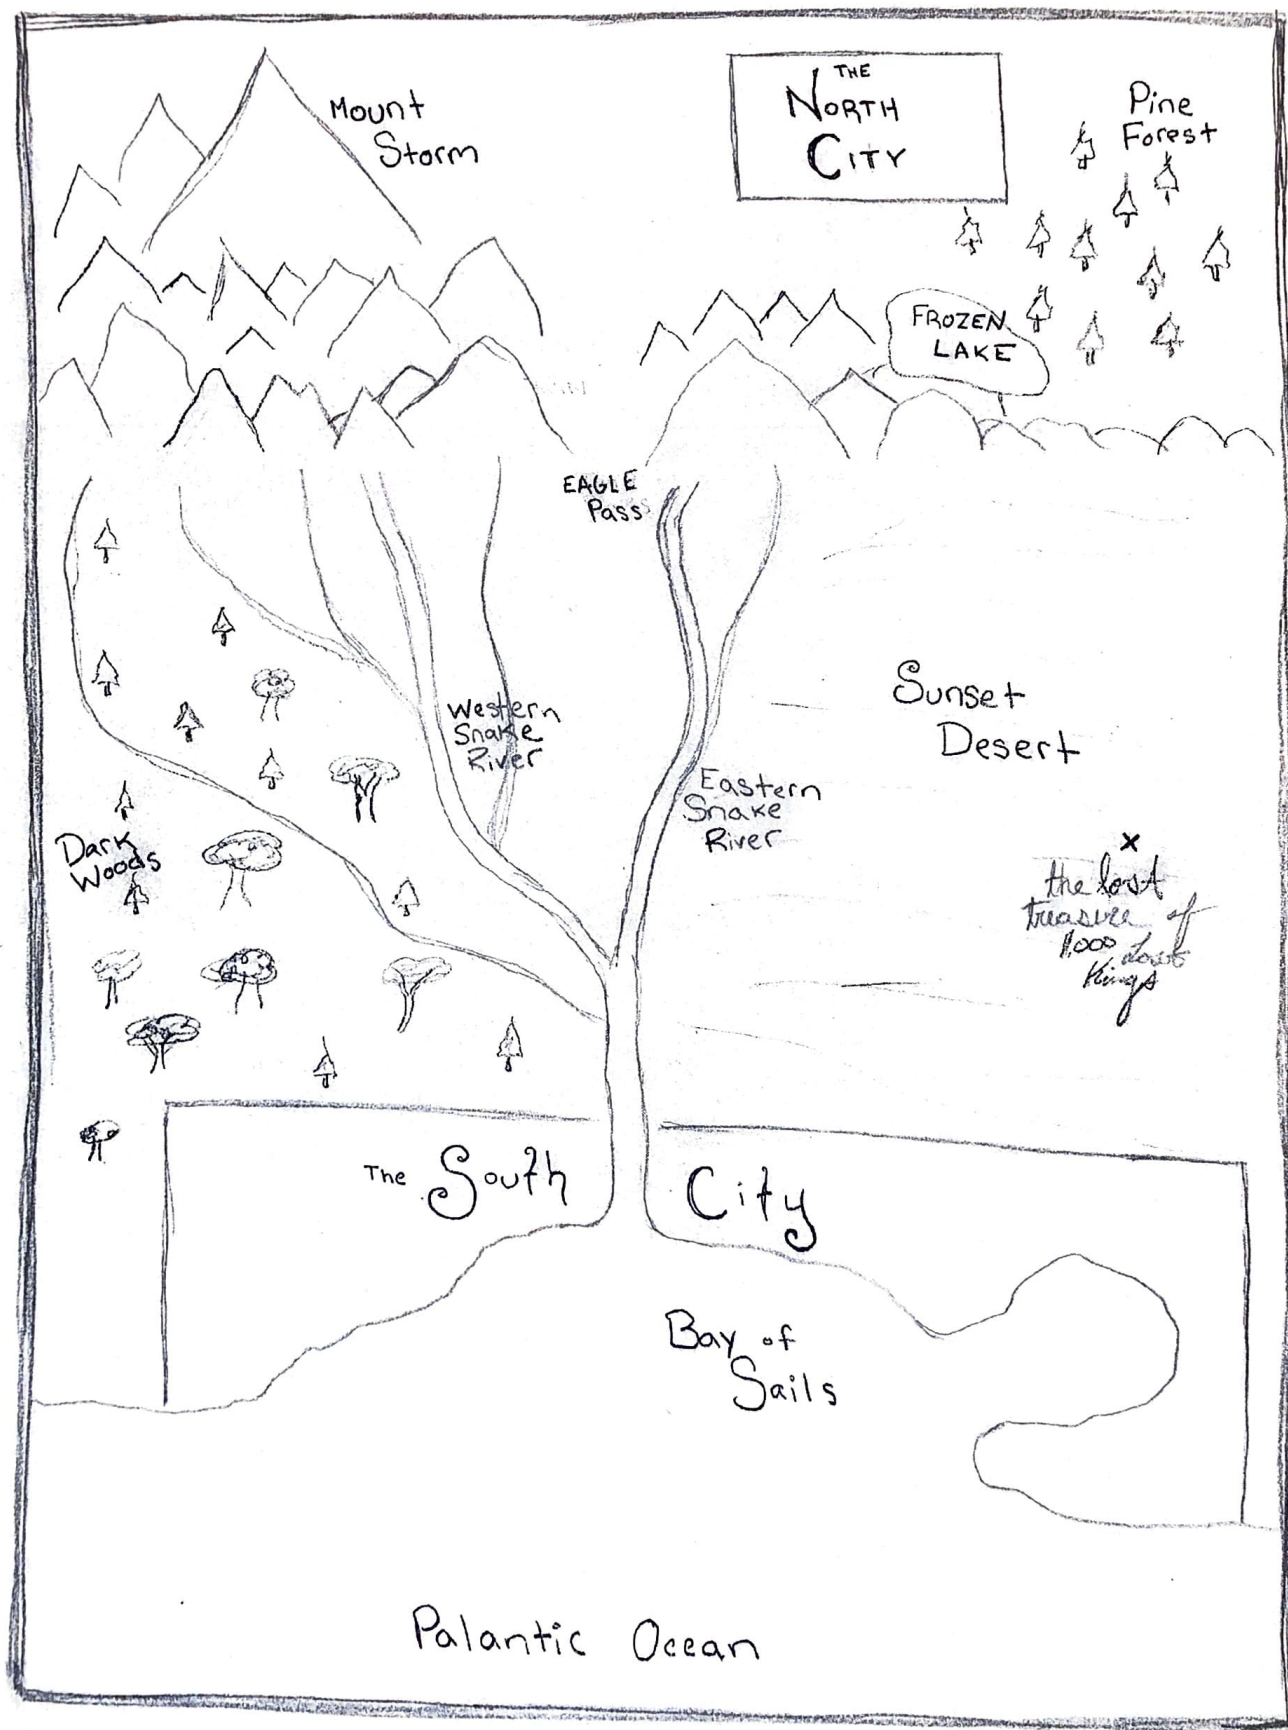 Mount
Storm
THE
NORTH
CITY
Pine
Forest
FROZEN
LAKE
EAGLE
Pass
Western
Snake
River
Eastern
Snake
River
Sunset
Desert
Dark
Woods
x
the lost
treasure of
1,000 Lost
Kings
The South City
Bay of
Sails
Palantic Ocean